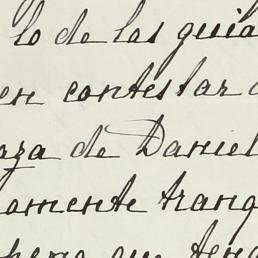 lo de las guia
en contestar a
oza de Daniel
amente tranq
pero que teng